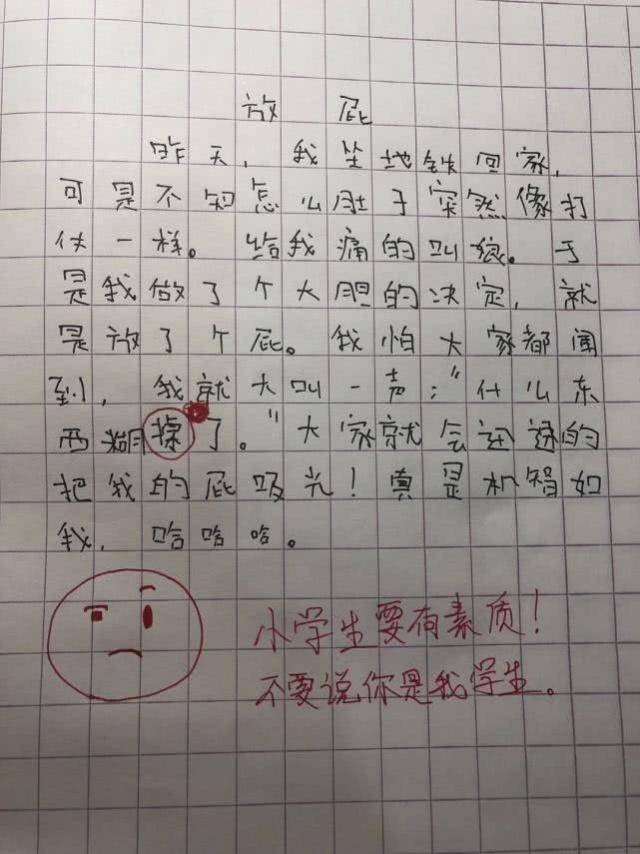 放屁
昨天，我坐地铁回家，
可是不知怎么肚子突然像打
仗一样。给我痛的叫狼。于
是我做了个大胆的决定，就
是放了个屁。我怕大家都闻
到，我就大叫一声：“什么东
西糊㨪了。”大家就会迅速的
把我的屁吸光！真是机智如
我，哈哈哈。
小学生要有素质！
不要说你是我学生。